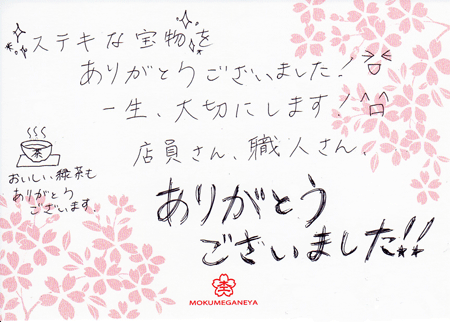 ステキな宝物を
ありがとうございました！
一生、大切にします！
店員さん、職人さん、
ありがとう
ございました!!
茶
おいしい緑茶も
ありがとう
ございます。
MOKUMEGANEYA